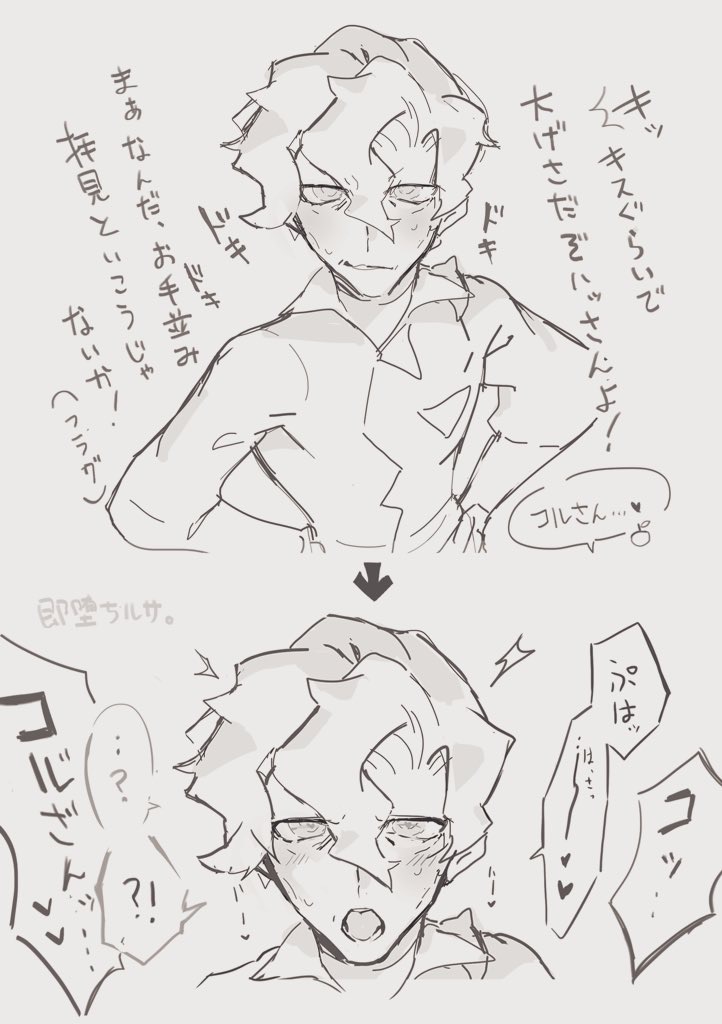 キッ
キスぐらいで
大げさだぞハッさんよ!
ドキ
ドキ
ドキ
まぁなんだ、お手並み
拝見といこうじゃ
ないか!
(フラグ)
コルさん…♥
即堕ちルサ。
ぷはッ
はぁっ
コッ…
…?
?!
コルさんッ…